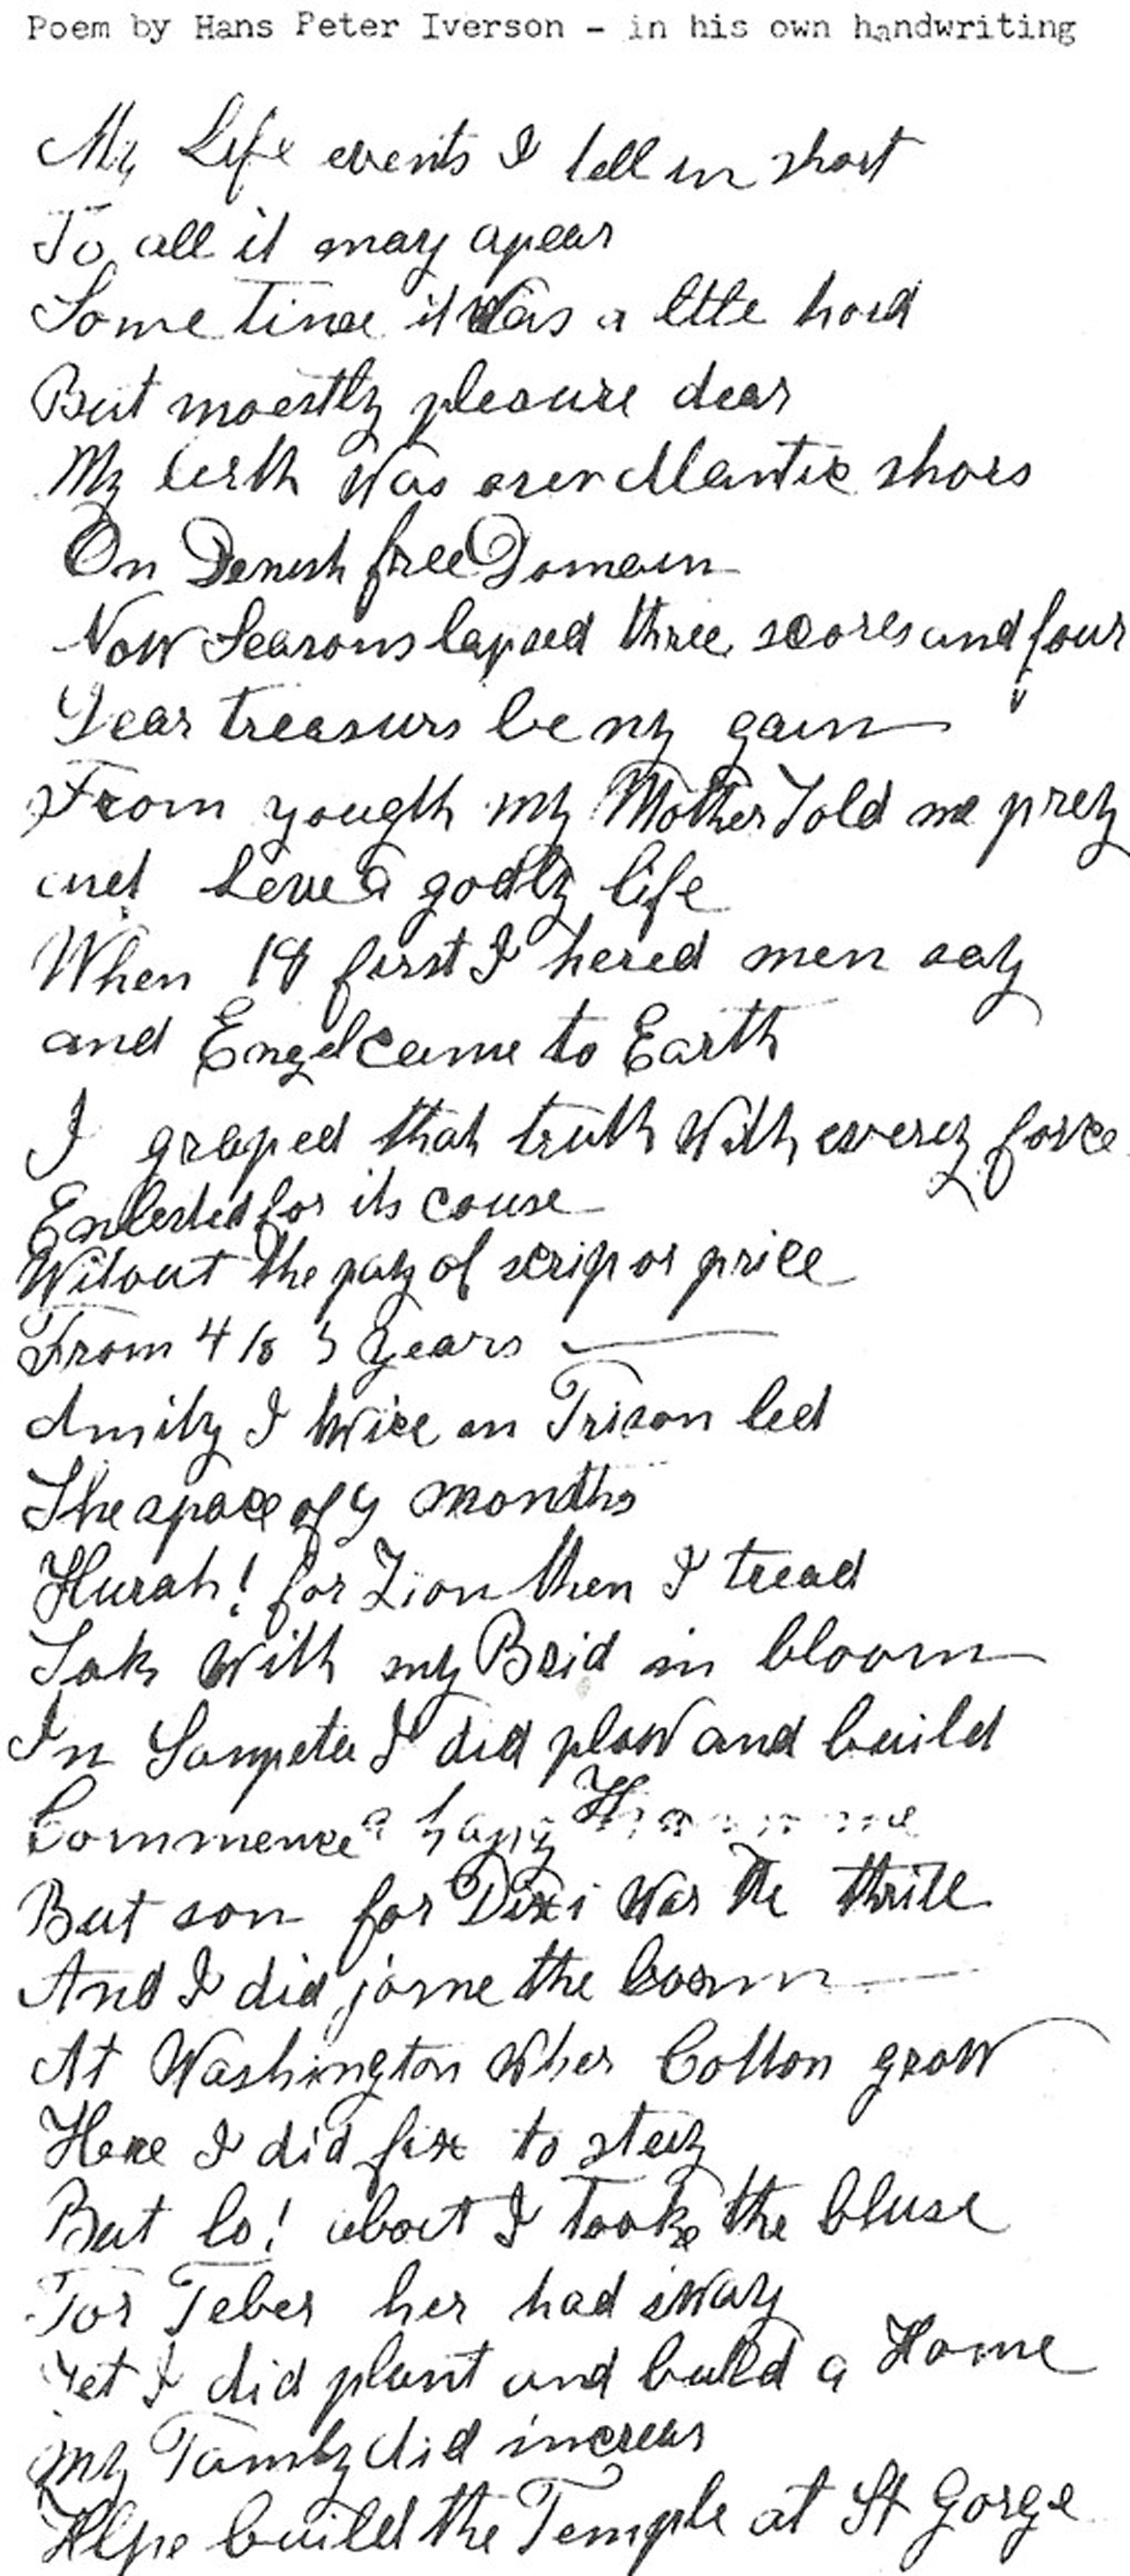 Poem by Hans Peter Iverson - in his own handwriting
My Life events I tell in short
To all it may apear
Some time it Was a ltte hard
But moestly plesure dear
My birth Was over Atlantic shors
On Denish free Domain
Now Seasons lapsed three scores and four
Dear treasurs be my gain
From yougth my Mother Told me prey
and Leve a godly life
When 18 first I hered men say
and Engel came to Earth
I graped that truth With everey force
Enlested for its couse
Witout the pay of scrip or price
From 4 to 5 years
Amity I twice in Prison led
The space of 9 months
Hurah! for Zion then I tread
Tok With my Brid in bloom
In Sanpete I did plow and build
Commence a hapy
But son for Dixi Was the thrill
And I did jorne the boom
At Washington Wher Cotton grow
Here I did fix to stey
But lo! about I Took the bluse
For Feber her had sway
Yet I did plant and build a Home
my Family did increas
Hlpe build the Temple at St Gorge